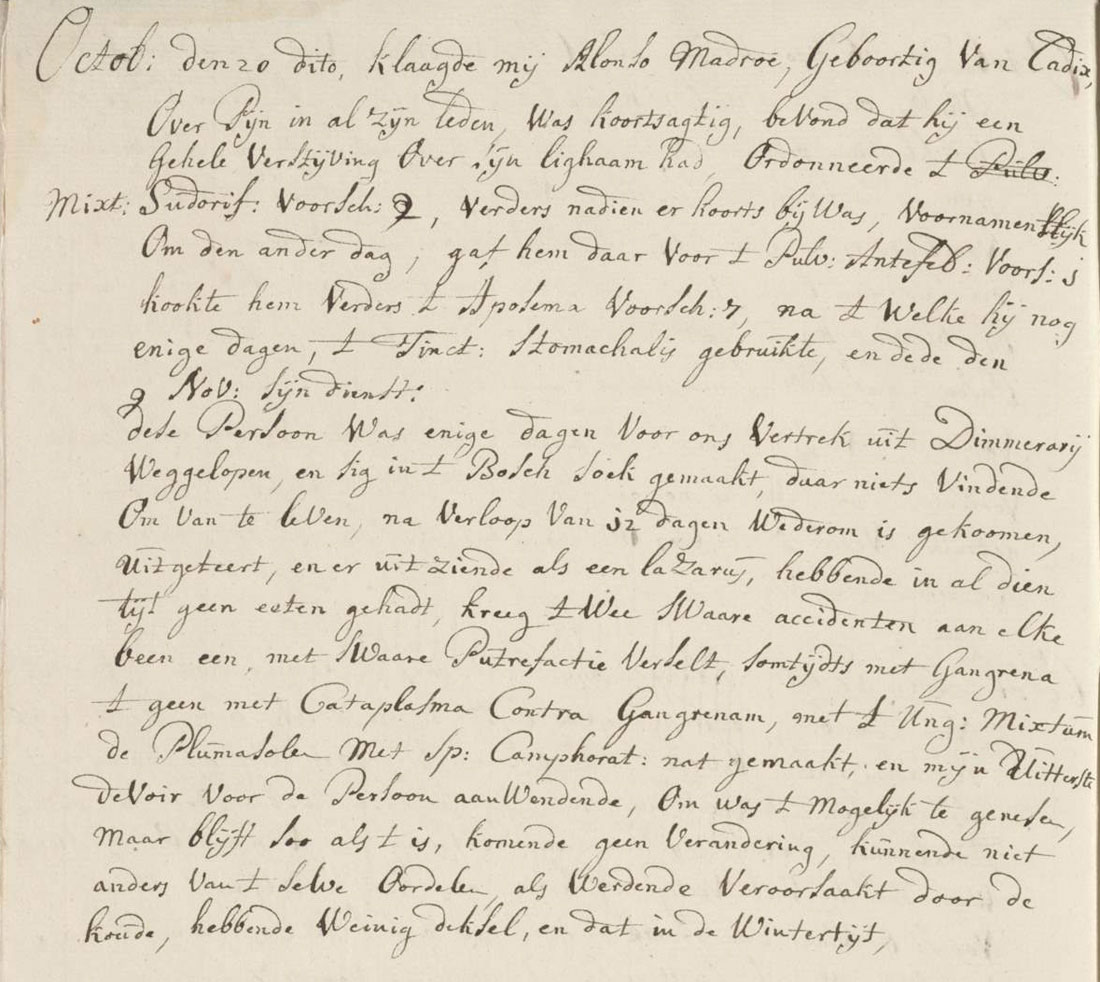 Octob: den 20 dito, klaagde mij Alonso Madroe, Geboortig Van Cadix,
Over Pijn in al zijn leden, Was koortsagtig, beVond dat hij een
Gehele Verstijving Over sijn lighaam had, Ordonneerde t Pulv:
Mixt: Sudorif: Voorsch: 2, Verders nadien er koorts bij Was, Voornamentlijk
Om den ander dag, gaf hem daar Voor t Pulv: Antefeb: Voors: 1
kookte hem Verders t Aposema Voorsch: 7, na t Welke hij nog
enige dagen, t Tinct: Stomachalis gebruikte, en dede den
9 Nov: sijn dienst:
dese Persoon Was enige dagen Voor ons Vertrek uit Dimmerarij
Weggelopen, en sig in t Bosch soek gemaakt, daar niets Vindende
Om van te leven, na Verloop Van 12 dagen Wederom is gekoomen,
uitgeteert, en er uit ziende als een lazarus, hebbende in al dien
tijt geen eeten gehadt, kreeg tWee sWaare accidenten aan elke
been een, met sWaare Putrefactie Verselt, somtijdts met Gangrena
t geen met Cataplasma Contra Gangrenam, met t Ung: Mixtum
de Plumasolen Met Sp: Camphorat: nat gemaakt, en mijn Uitterste
deVoir Voor de Persoon aanWendende, Om was t Mogelijk te genesen,
maar blijft soo als t is, komende geen Verandering, kunnende niet
anders Van t selve Oordelen, als Werdende Veroorsaakt door de
koude, hebbende Weinig deksel, en dat in de Wintertijt,